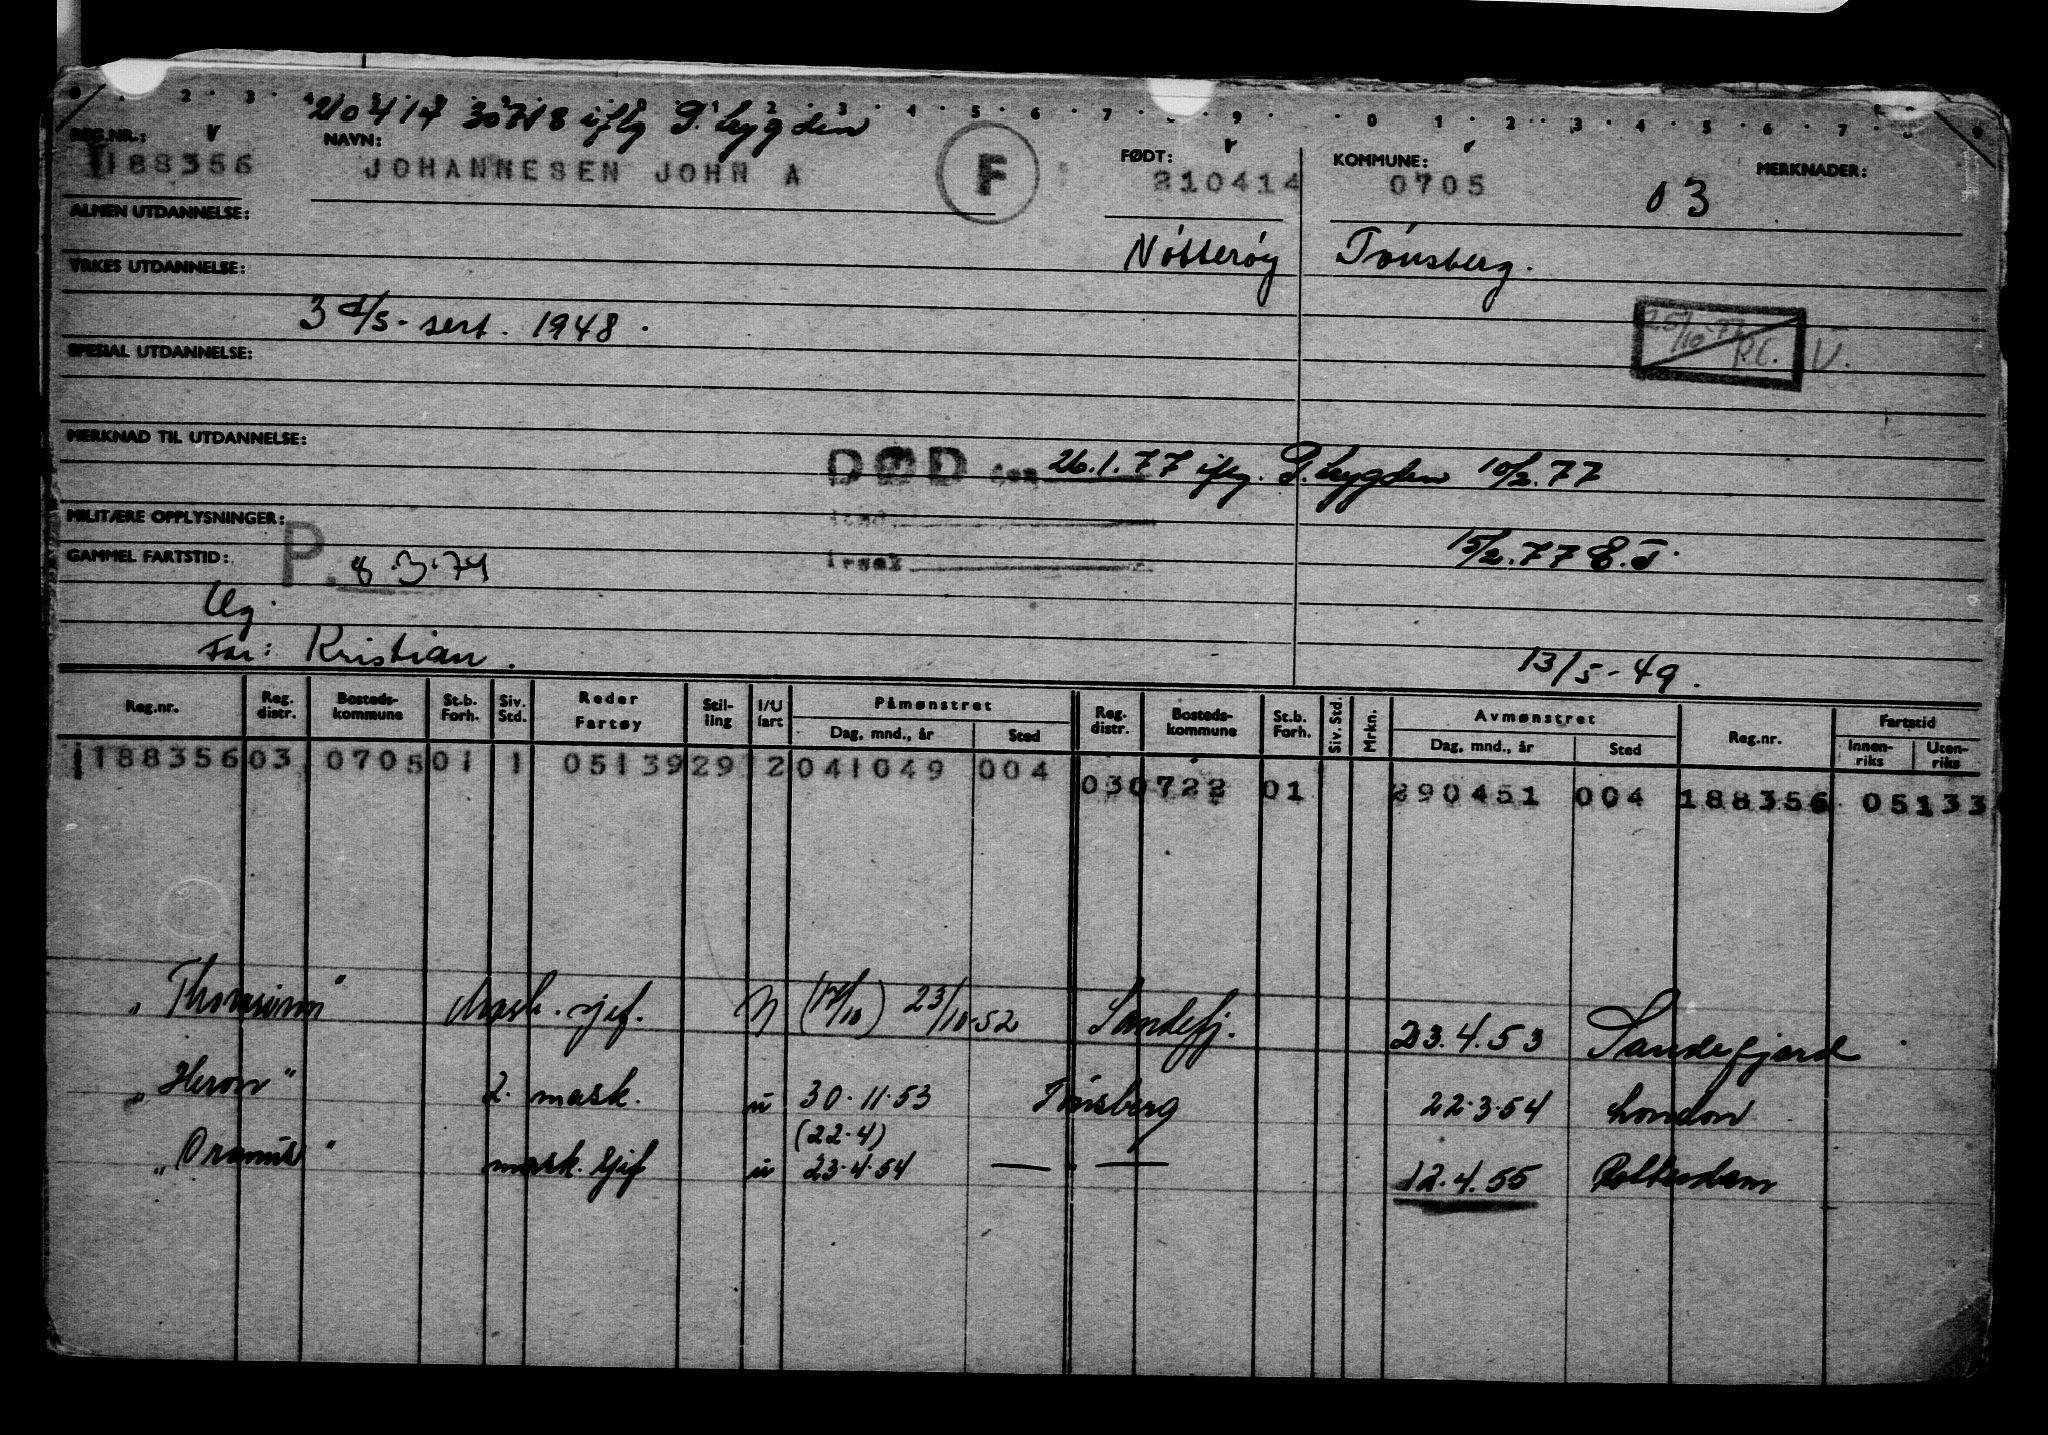 210414 30718 iflg P. Lygden
REG.NR.: NAVN: FØDT: KOMMUNE: MERKNADER:
188356 JOHANNESEN JOHN A F 210414 0705 03
ALMEN UTDANNELSE:
Nötteröy Tönsberg.
YRKES UTDANNELSE:
3 d/s - sert. 1948.
25/10-77 V.
SPESIAL UTDANNELSE:
MERKNAD TIL UTDANNELSE:
DØD den 26.1.77 iflg. P. Lygden 10/2.77
MILITÆRE OPPLYSNINGER:
sted
15/2.77 E.T.
GAMMEL FARTSTID: P. 8.3.74
årsak
Ug.
Far: Kristian.
13/5-49.
Reg.nr. Reg. distr. Bosteds-kommune St.b. Forh. Siv. Std. Reder Fartøy Stil-ling I/U fart Påmønstret Dag, mnd., år Sted Reg. distr. Bosteds-kommune St.b. Forh. Siv. Std. Mrkn. Avmønstret Dag, mnd., år Sted Reg.nr. Fartstid Innen-riks Uten-riks
188356 03 0705 01 1 05139 29 2 041049 004 03 0722 01 290451 004 188356 05133
"Thorsinn" Mask. sjef. U (17/10) 23/10-52 Sandefj. 23.4.53 Sandefjord
"Heron" 2. mask. u 30.11.53 Tönsberg 22.3.54 London
(22.4)
"Oranus" mask. sjef u 23.4.54 — " — 12.4.55 Rotterdam